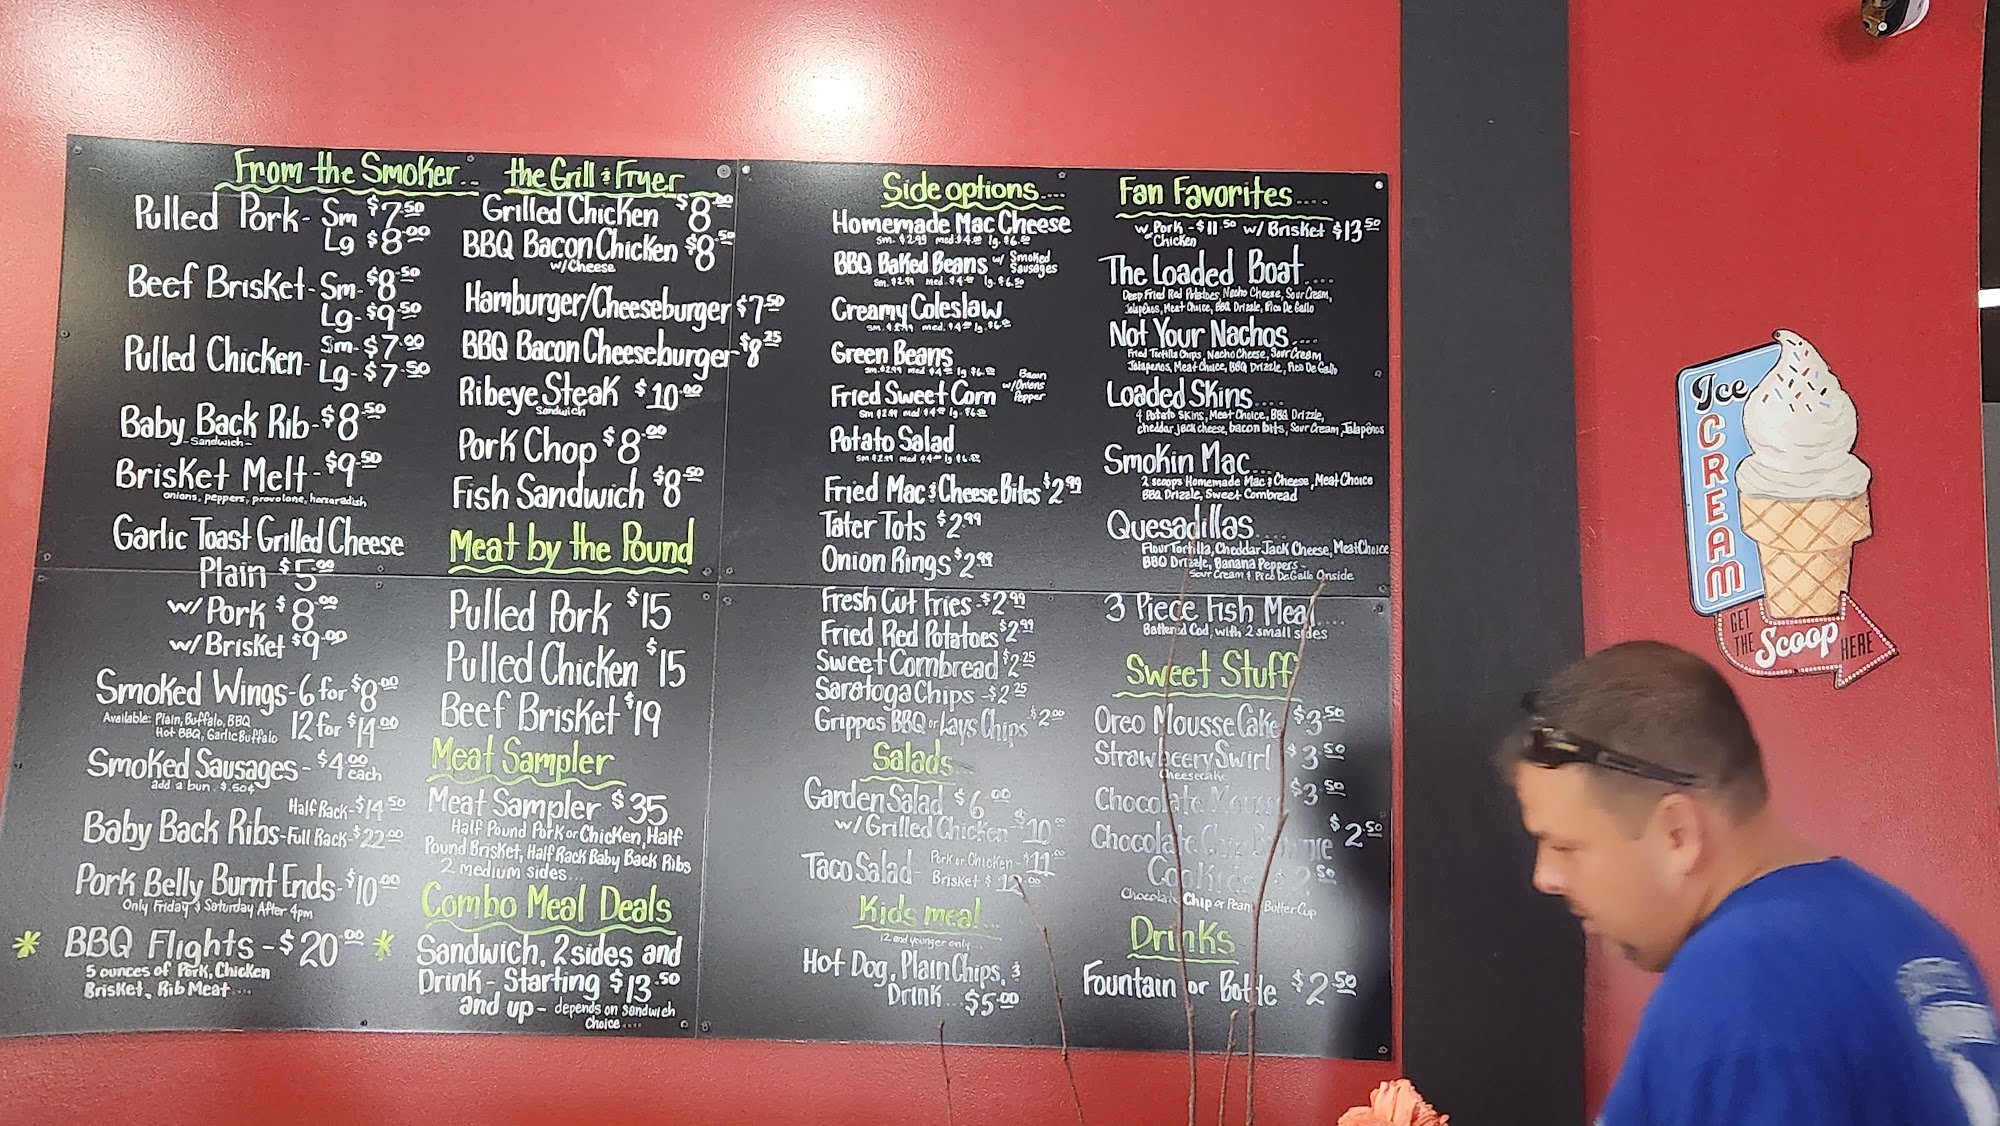 From the Smoker...
Pulled Pork - Sm $7.50
Lg $8.00
Beef Brisket - Sm - $8.50
Lg - $9.50
Pulled Chicken - Sm - $7.00
Lg - $7.50
Baby Back Rib - $8.50
- Sandwich -
Brisket Melt - $9.50
onions, peppers, provolone, horseradish
Garlic Toast Grilled Cheese
Plain $5.00
w/ Pork $8.00
w/ Brisket $9.00
Smoked Wings - 6 for $8.00
12 for $14.00
Available: Plain, Buffalo, BBQ
Hot BBQ, Garlic Buffalo
Smoked Sausages - $4.00 each
add a bun . $.50¢
Half Rack - $14.50
Baby Back Ribs - Full Rack - $22.00
Pork Belly Burnt Ends - $10.00
Only Friday & Saturday After 4pm
* BBQ Flights - $20.00 *
5 ounces of Pork, Chicken
Brisket, Rib Meat....
the Grill & Fryer
Grilled Chicken $8.00
BBQ Bacon Chicken $8.50
w/ Cheese
Hamburger/Cheeseburger $7.50
BBQ Bacon Cheeseburger - $8.25
Ribeye Steak $10.00
Sandwich
Pork Chop $8.00
Fish Sandwich $8.50
Meat by the Pound
Pulled Pork $15
Pulled Chicken $15
Beef Brisket $19
Meat Sampler
Meat Sampler $35
Half Pound Pork or Chicken, Half
Pound Brisket, Half Rack Baby Back Ribs
2 medium sides...
Combo Meal Deals
Sandwich, 2 sides and
Drink - Starting $13.50
and up - depends on Sandwich
Choice....
Side options....
Homemade Mac Cheese
sm. $2.99 med. $4.00 lg. $6.50
BBQ Baked Beans w/ Smoked Sausages
sm. $2.99 med. $4.00 lg. $6.50
Creamy Coleslaw
sm. $2.99 med. $4.00 lg $6.50
Green Beans
sm. $2.99 med $4.00 lg $6.50
Fried Sweet Corn w/ Onions Bacon Pepper
sm $2.99 med $4.00 lg. $6.50
Potato Salad
sm $2.99 med $4.00 lg $6.50
Fried Mac & Cheese Bites $2.99
Tater Tots $2.99
Onion Rings $2.99
Fresh Cut Fries - $2.99
Fried Red Potatoes $2.99
Sweet Cornbread $2.25
Saratoga Chips - $2.25
Grippos BBQ or Lays Chips $2.00
Salads...
Garden Salad $6.00
w/ Grilled Chicken - $10.00
Taco Salad - Pork or Chicken - $11.00
Brisket $12.00
Kids meal...
12 and younger only...
Hot Dog, Plain Chips, &
Drink... $5.00
Fan Favorites....
w/ Pork - $11.50 w/ Brisket $13.50
Chicken
The Loaded Boat....
Deep Fried Red Potatoes, Nacho Cheese, Sour Cream,
Jalapeños, Meat Choice, BBQ Drizzle, Pico De Gallo
Not Your Nachos....
Fried Tortilla Chips, Nacho Cheese, Sour Cream
Jalapenos, Meat Choice, BBQ Drizzle, Pico De Gallo
Loaded Skins....
4 Potato Skins, Meat Choice, BBQ Drizzle,
cheddar jack cheese, bacon bits, Sour Cream, Jalapeños
Smokin Mac....
2 scoops Homemade Mac & Cheese, Meat Choice
BBQ Drizzle, Sweet Cornbread
Quesadillas....
Flour Tortilla, Cheddar Jack Cheese, Meat Choice
BBQ Drizzle, Banana Peppers -
Sour Cream & Pico De Gallo Onside
3 Piece Fish Meal....
Battered Cod, with 2 small sides
Sweet Stuff
Oreo Mousse Cake $3.50
Strawbeery Swirl $3.50
Cheesecake
Chocolate Mousse $3.50
Chocolate Chip Brownie $2.50
Cookies $2.50
Chocolate Chip or Peanut Butter Cup
Drinks
Fountain or Bottle $2.50
Ice
CREAM
GET
THE
Scoop
HERE